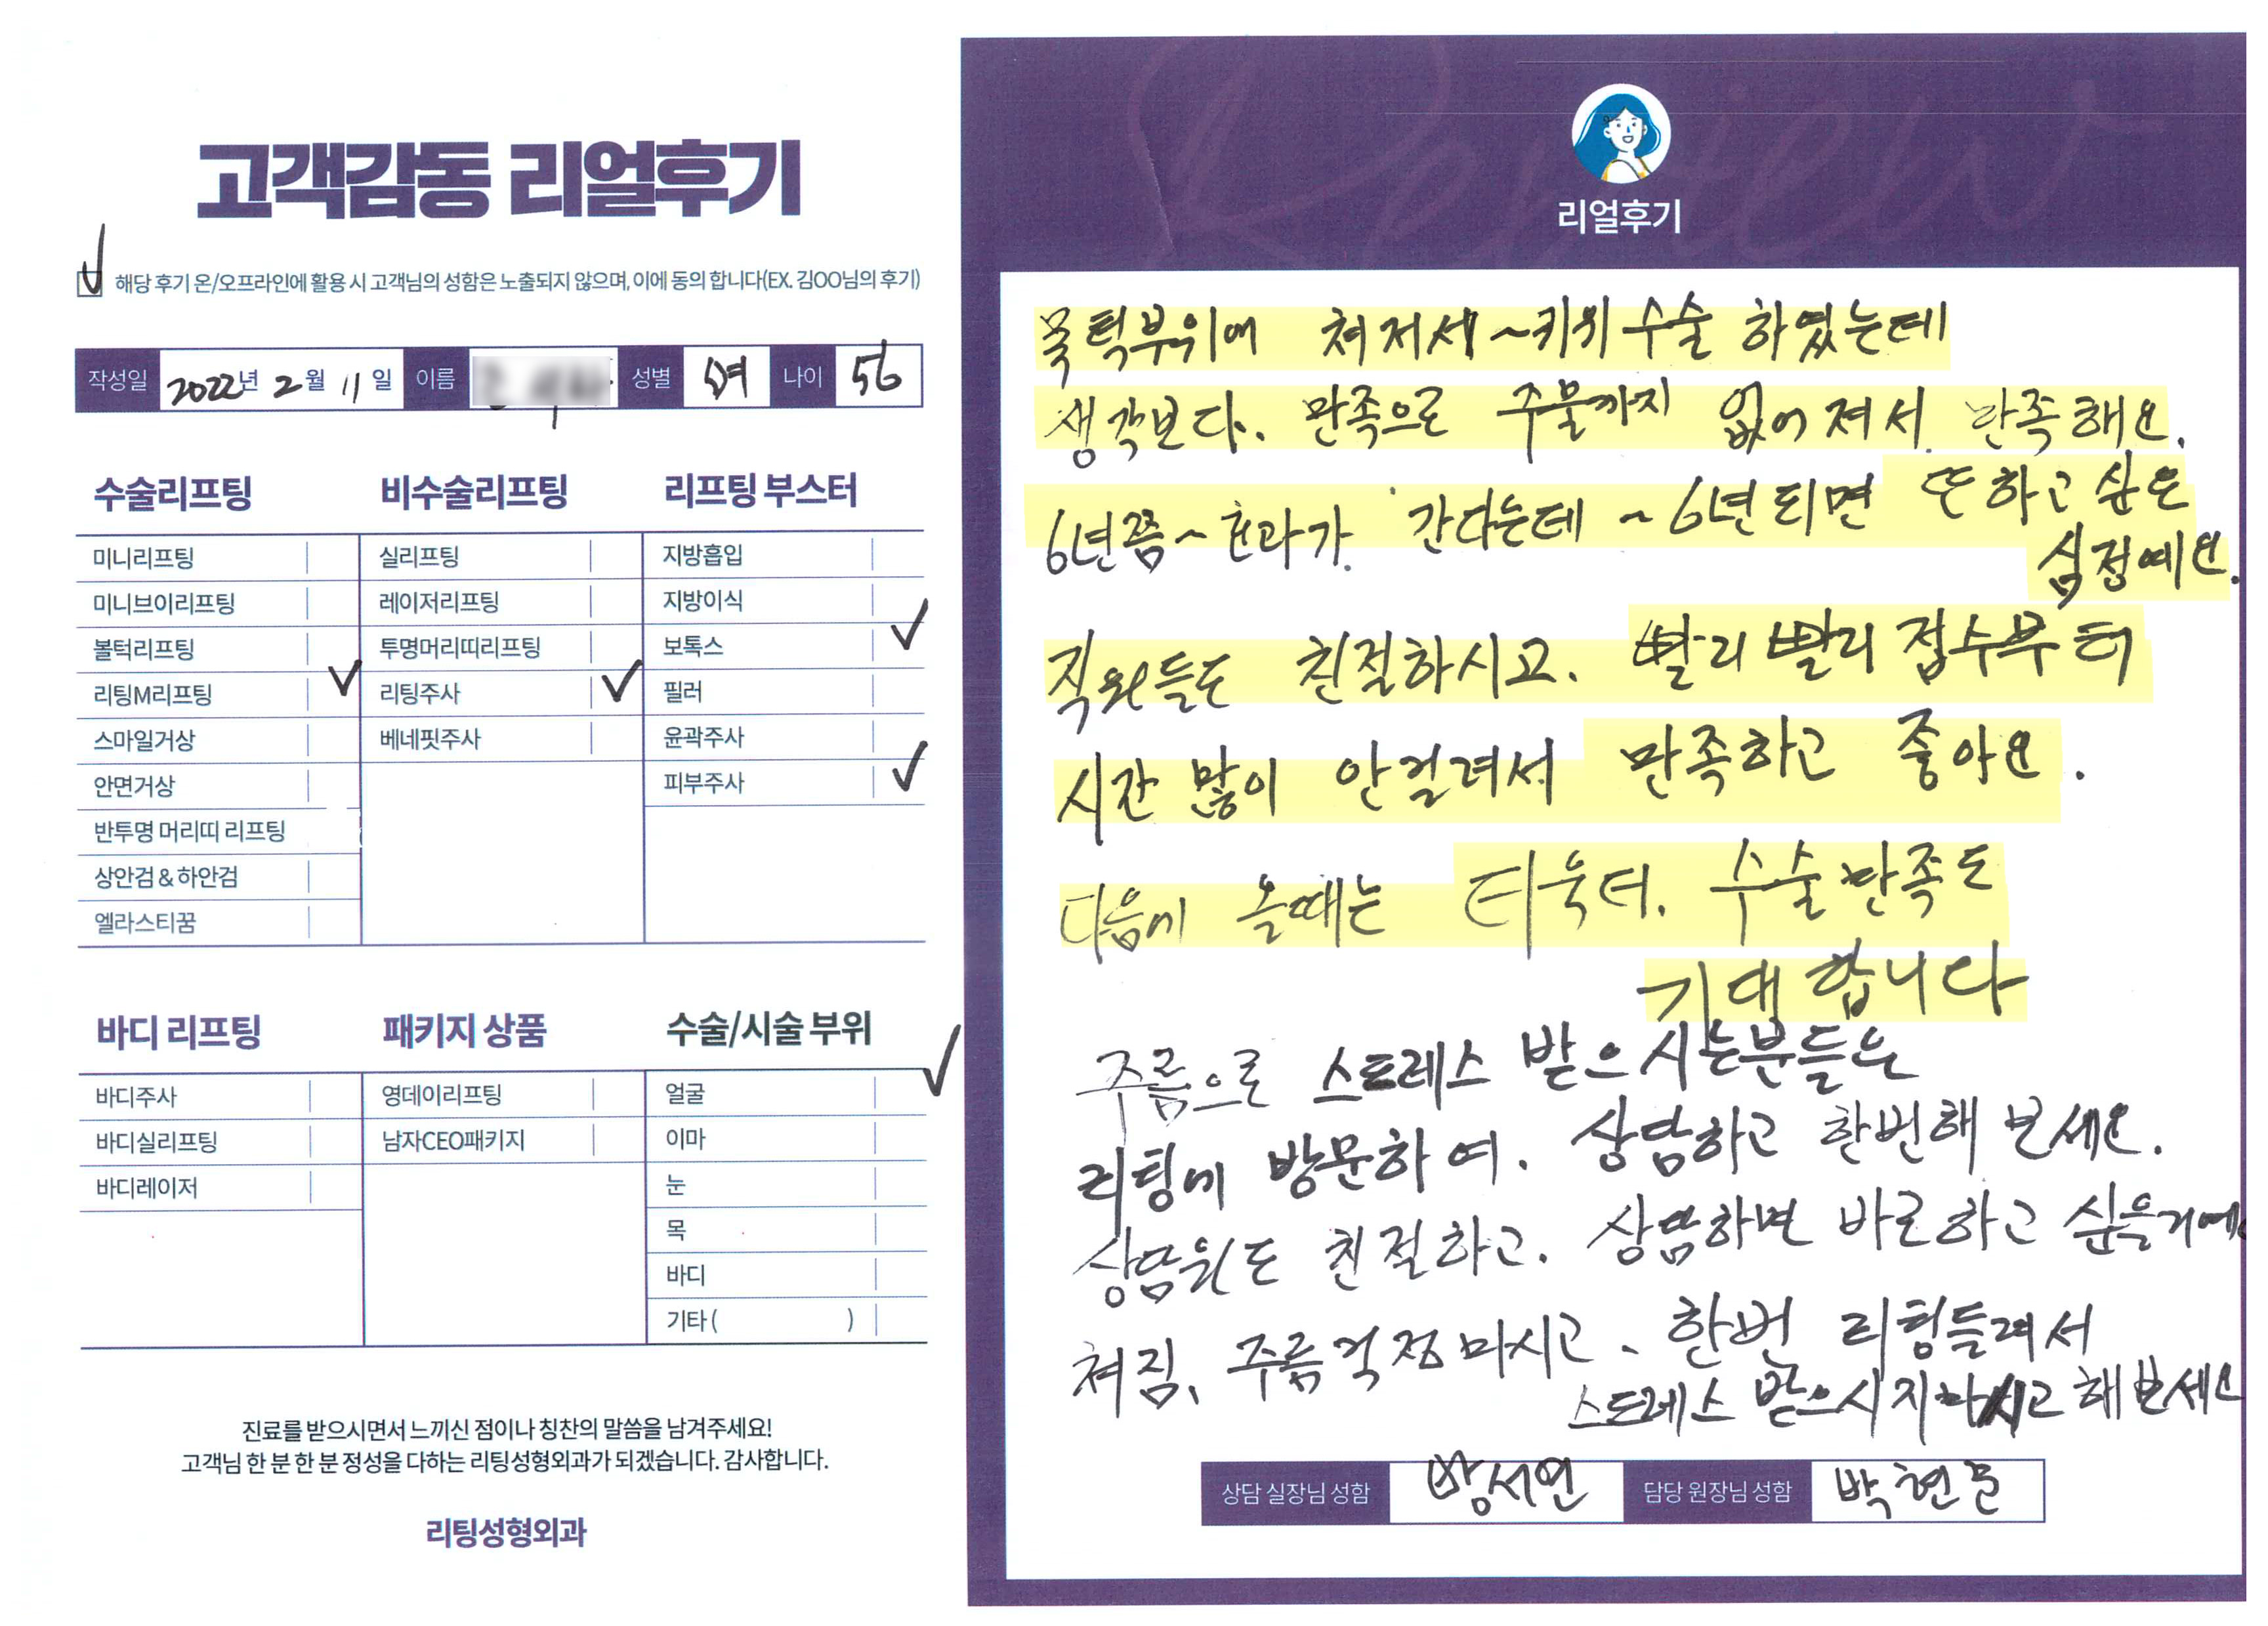 고객감동 리얼후기
해당 후기 온/오프라인에 활용 시 고객님의 성함은 노출되지 않으며, 이에 동의 합니다(EX. 김OO님의 후기)
작성일 2022년 2월 11일 이름 성별 여 나이 56
수술리프팅
미니리프팅
미니브이리프팅
볼턱리프팅
리팅M리프팅
스마일거상
안면거상
반투명 머리띠 리프팅
상안검 & 하안검
엘라스티꿈
비수술리프팅
실리프팅
레이저리프팅
투명머리띠리프팅
리팅주사
베네핏주사
리프팅 부스터
지방흡입
지방이식
보톡스
필러
윤곽주사
피부주사
바디 리프팅
바디주사
바디실리프팅
바디레이저
패키지 상품
영데이리프팅
남자CEO패키지
수술/시술 부위
얼굴
이마
눈
목
바디
기타 ( )
진료를 받으시면서 느끼신 점이나 칭찬의 말씀을 남겨주세요!
고객님 한 분 한 분 정성을 다하는 리팅성형외과가 되겠습니다. 감사합니다.
리팅성형외과
리얼후기
턱부위에 쳐저서~ 수술 하였는데
생각보다. 만족으로 주물까지 없어져서 만족해요.
6년쯤~효과가 간다는데 ~6년되면 또하고 싶은
심정예요.
직원들도 친절하시고. 빨리 빨리 접수부터
시간 많이 안걸려서 만족하고 좋아요.
다음에 올때는 더욱더. 수술만족도
기대합니다
주름으로 스트레스 받으시는분들은
리팅에 방문하여. 상담하고 한번해 보세요.
상담원도 친절하고. 상담하면 바로하고 싶을거예
쳐짐, 주름걱정마시고. 한번 리팅들려서
스트레스 받으시지마시고 해보세요
상담 실장님 성함 방서연 담당 원장님 성함 박현문